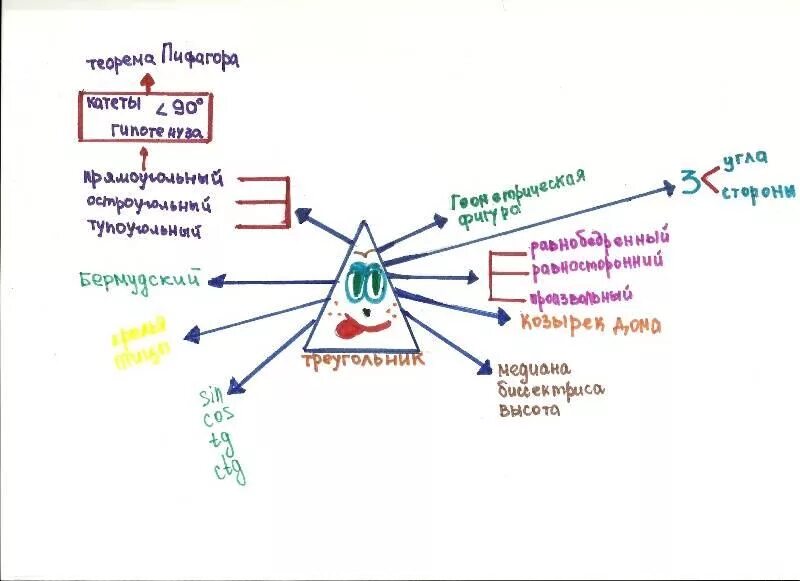 теорема Пифагора
катеты <90°
гипотенуза
прямоугольный
остроугольный
тупоугольный
Бермудский
sin
cos
tg
ctg
треугольник
Геометрическая
фигура
3
угла
стороны
равнобедренный
равносторонний
произвольный
козырек дома
медиана
биссектриса
высота